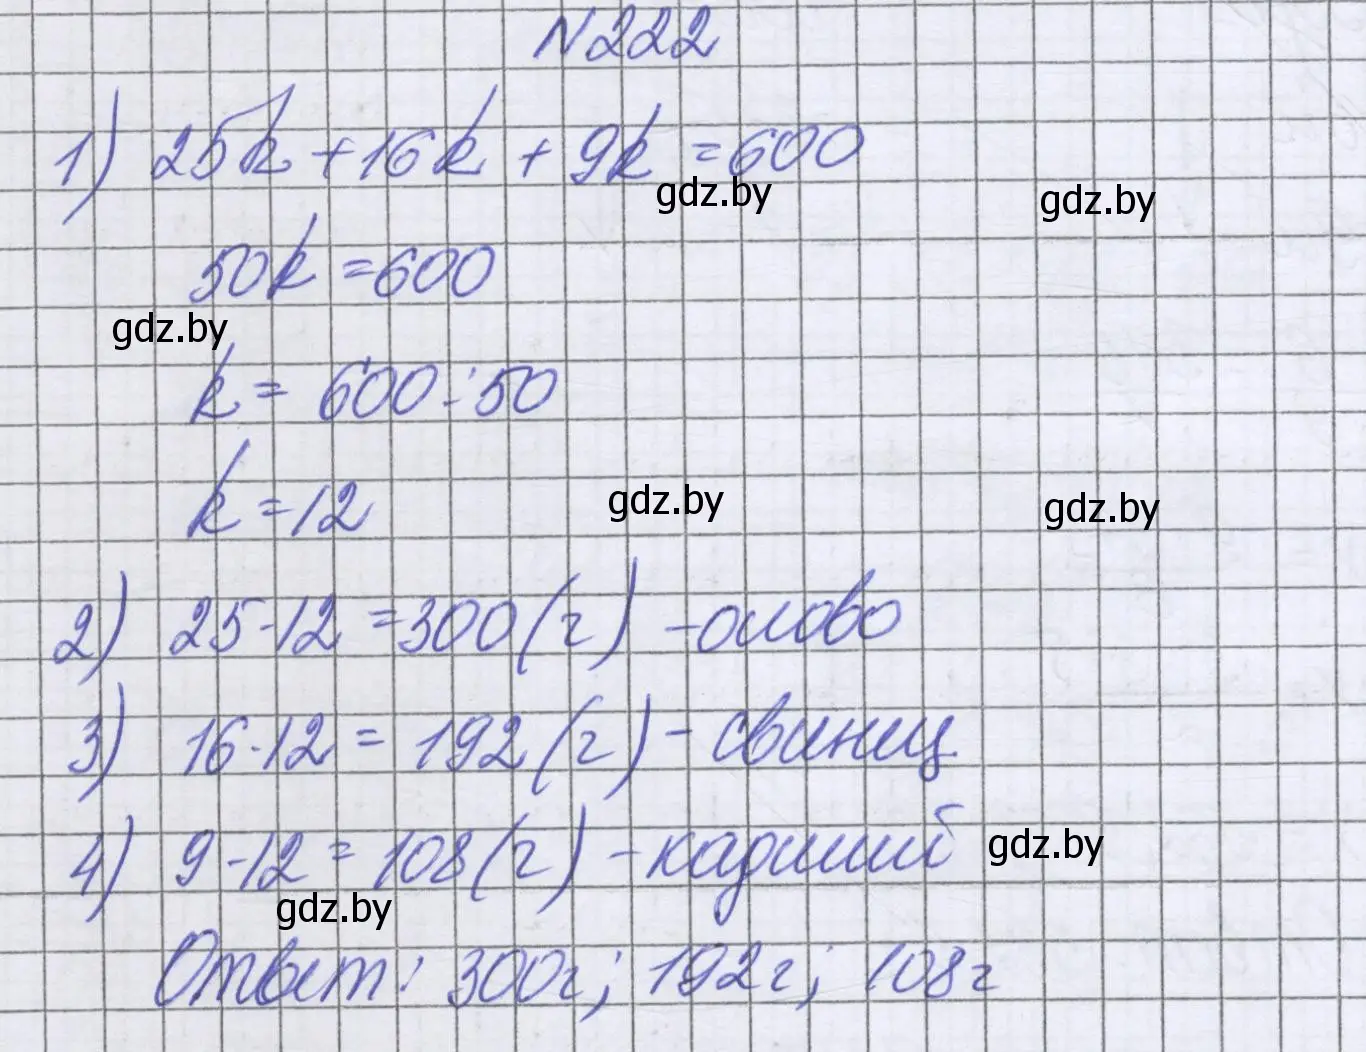 N222
1) 25k + 16k + 9k = 600
gdz.by
gdz.by
50k = 600
gdz.by
k = 600 : 50
k = 12
gdz.by
gdz.by
2) 25 · 12 = 300 (г) - олово
3) 16 · 12 = 192 (г) - свинец
4) 9 · 12 = 108 (г) - кадмий
gdz.by
gdz.by
Ответ: 300г; 192г; 108г